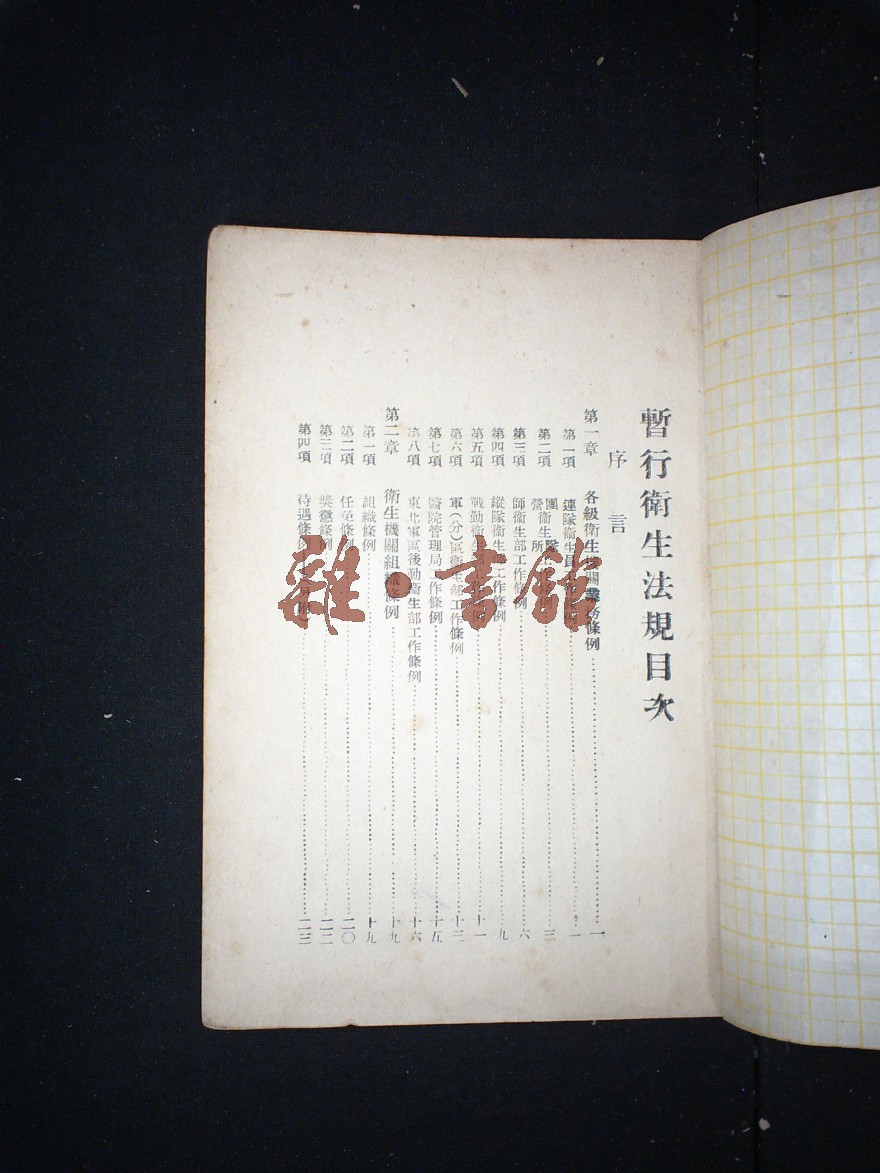 暫行衛生法規目次
序言
第一章 各級衛生機關業務條例 一
第一項 連隊衛生員工作條例 一
第二項 團衛生隊 營 所 條例 三
第三項 師衛生部工作條例 六
第四項 縱隊衛生部工作條例 九
第五項 戰勤衛生部工作條例 十一
第六項 軍(分)區衛生部工作條例 十三
第七項 醫院管理局工作條例 十五
第八項 東北軍區後勤衛生部工作條例 十六
第二章 衛生機關組織條例 十九
第一項 組織條例 十九
第二項 任免條例 二〇
第三項 獎懲條例 二二
第四項 待遇條例 二三
雜·書館